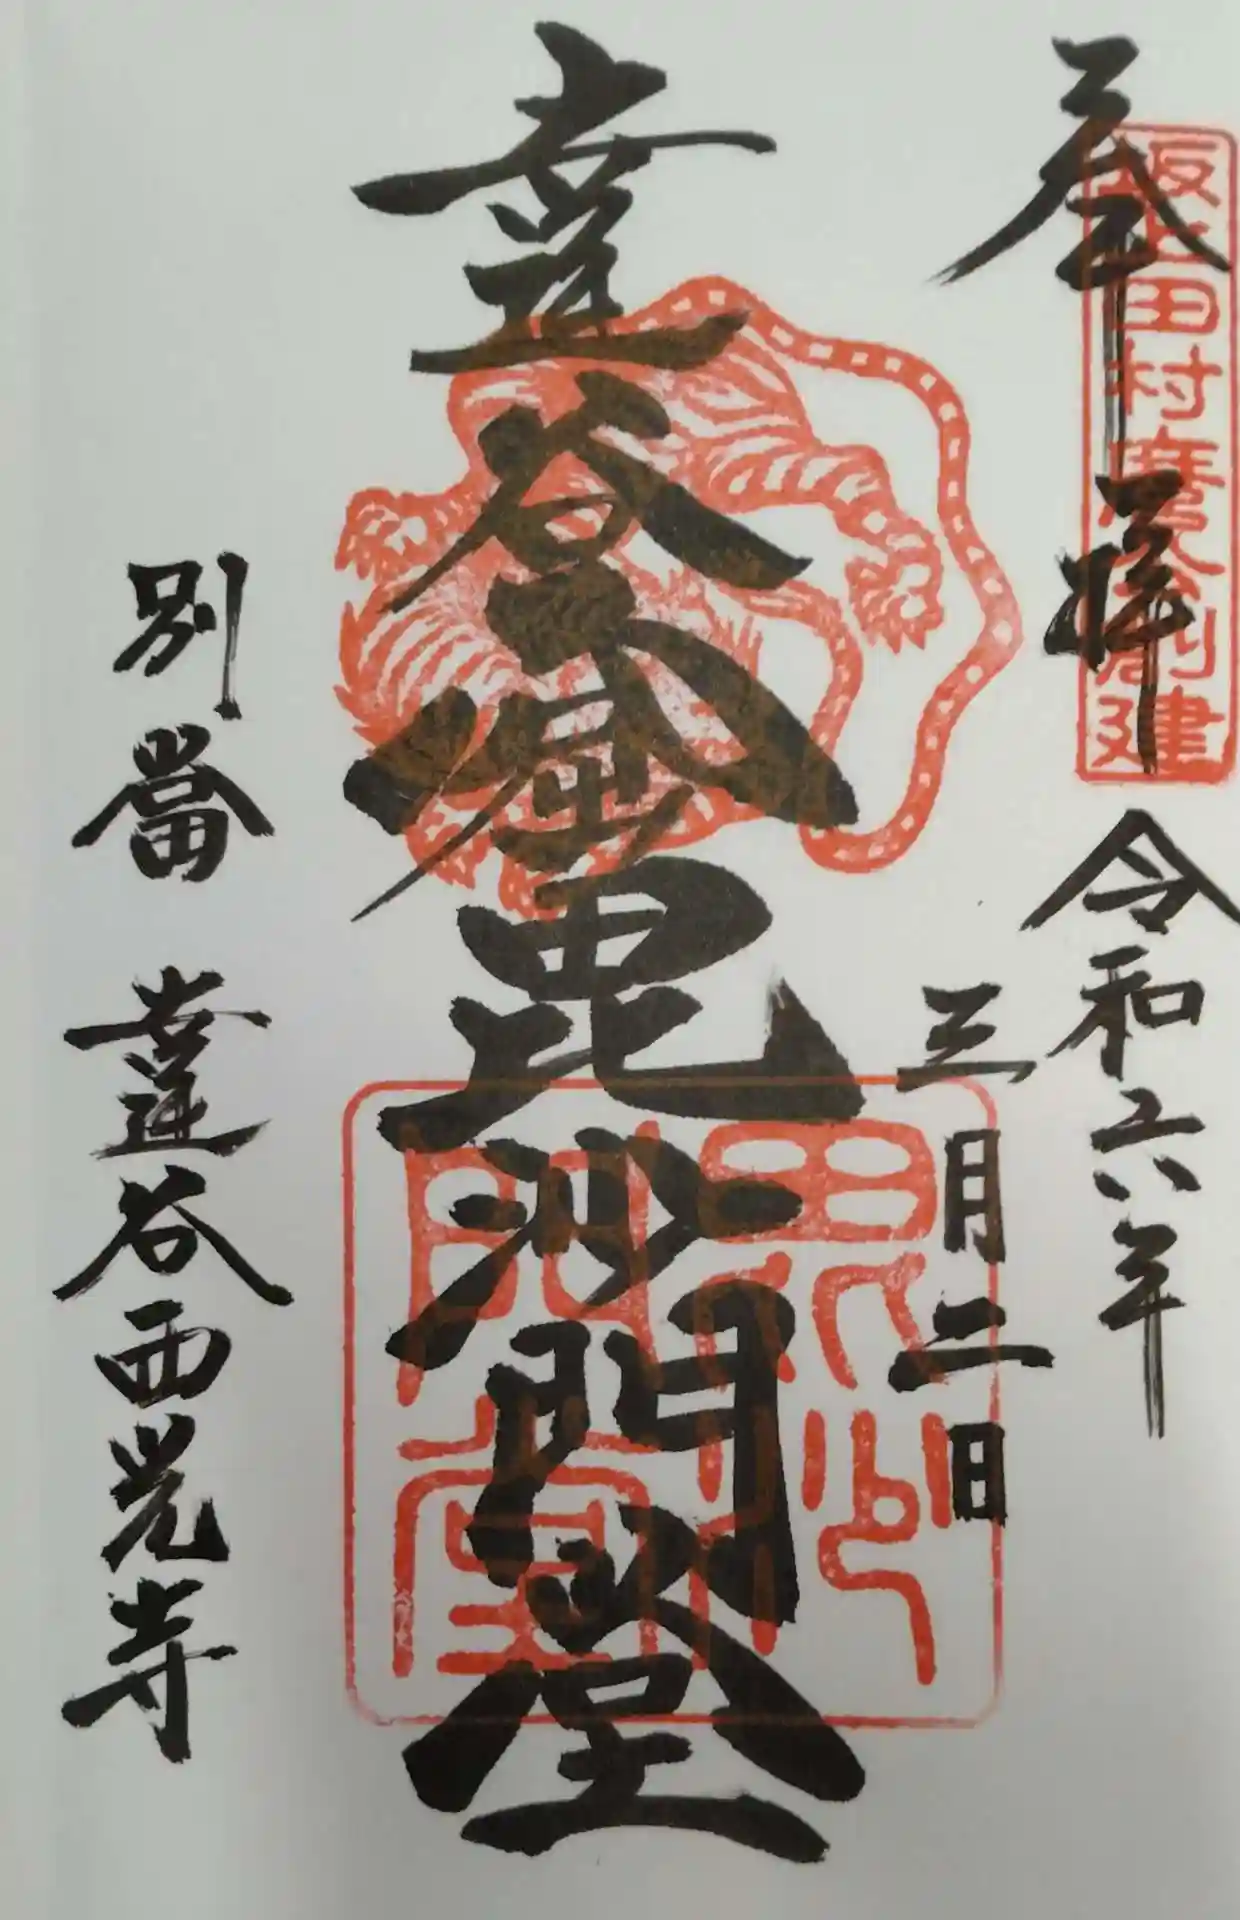 奉拝
坂上田村麿公創建
令和六年
三月二日
達谷窟毘沙門堂
毘沙
門堂
別當 達谷西光寺